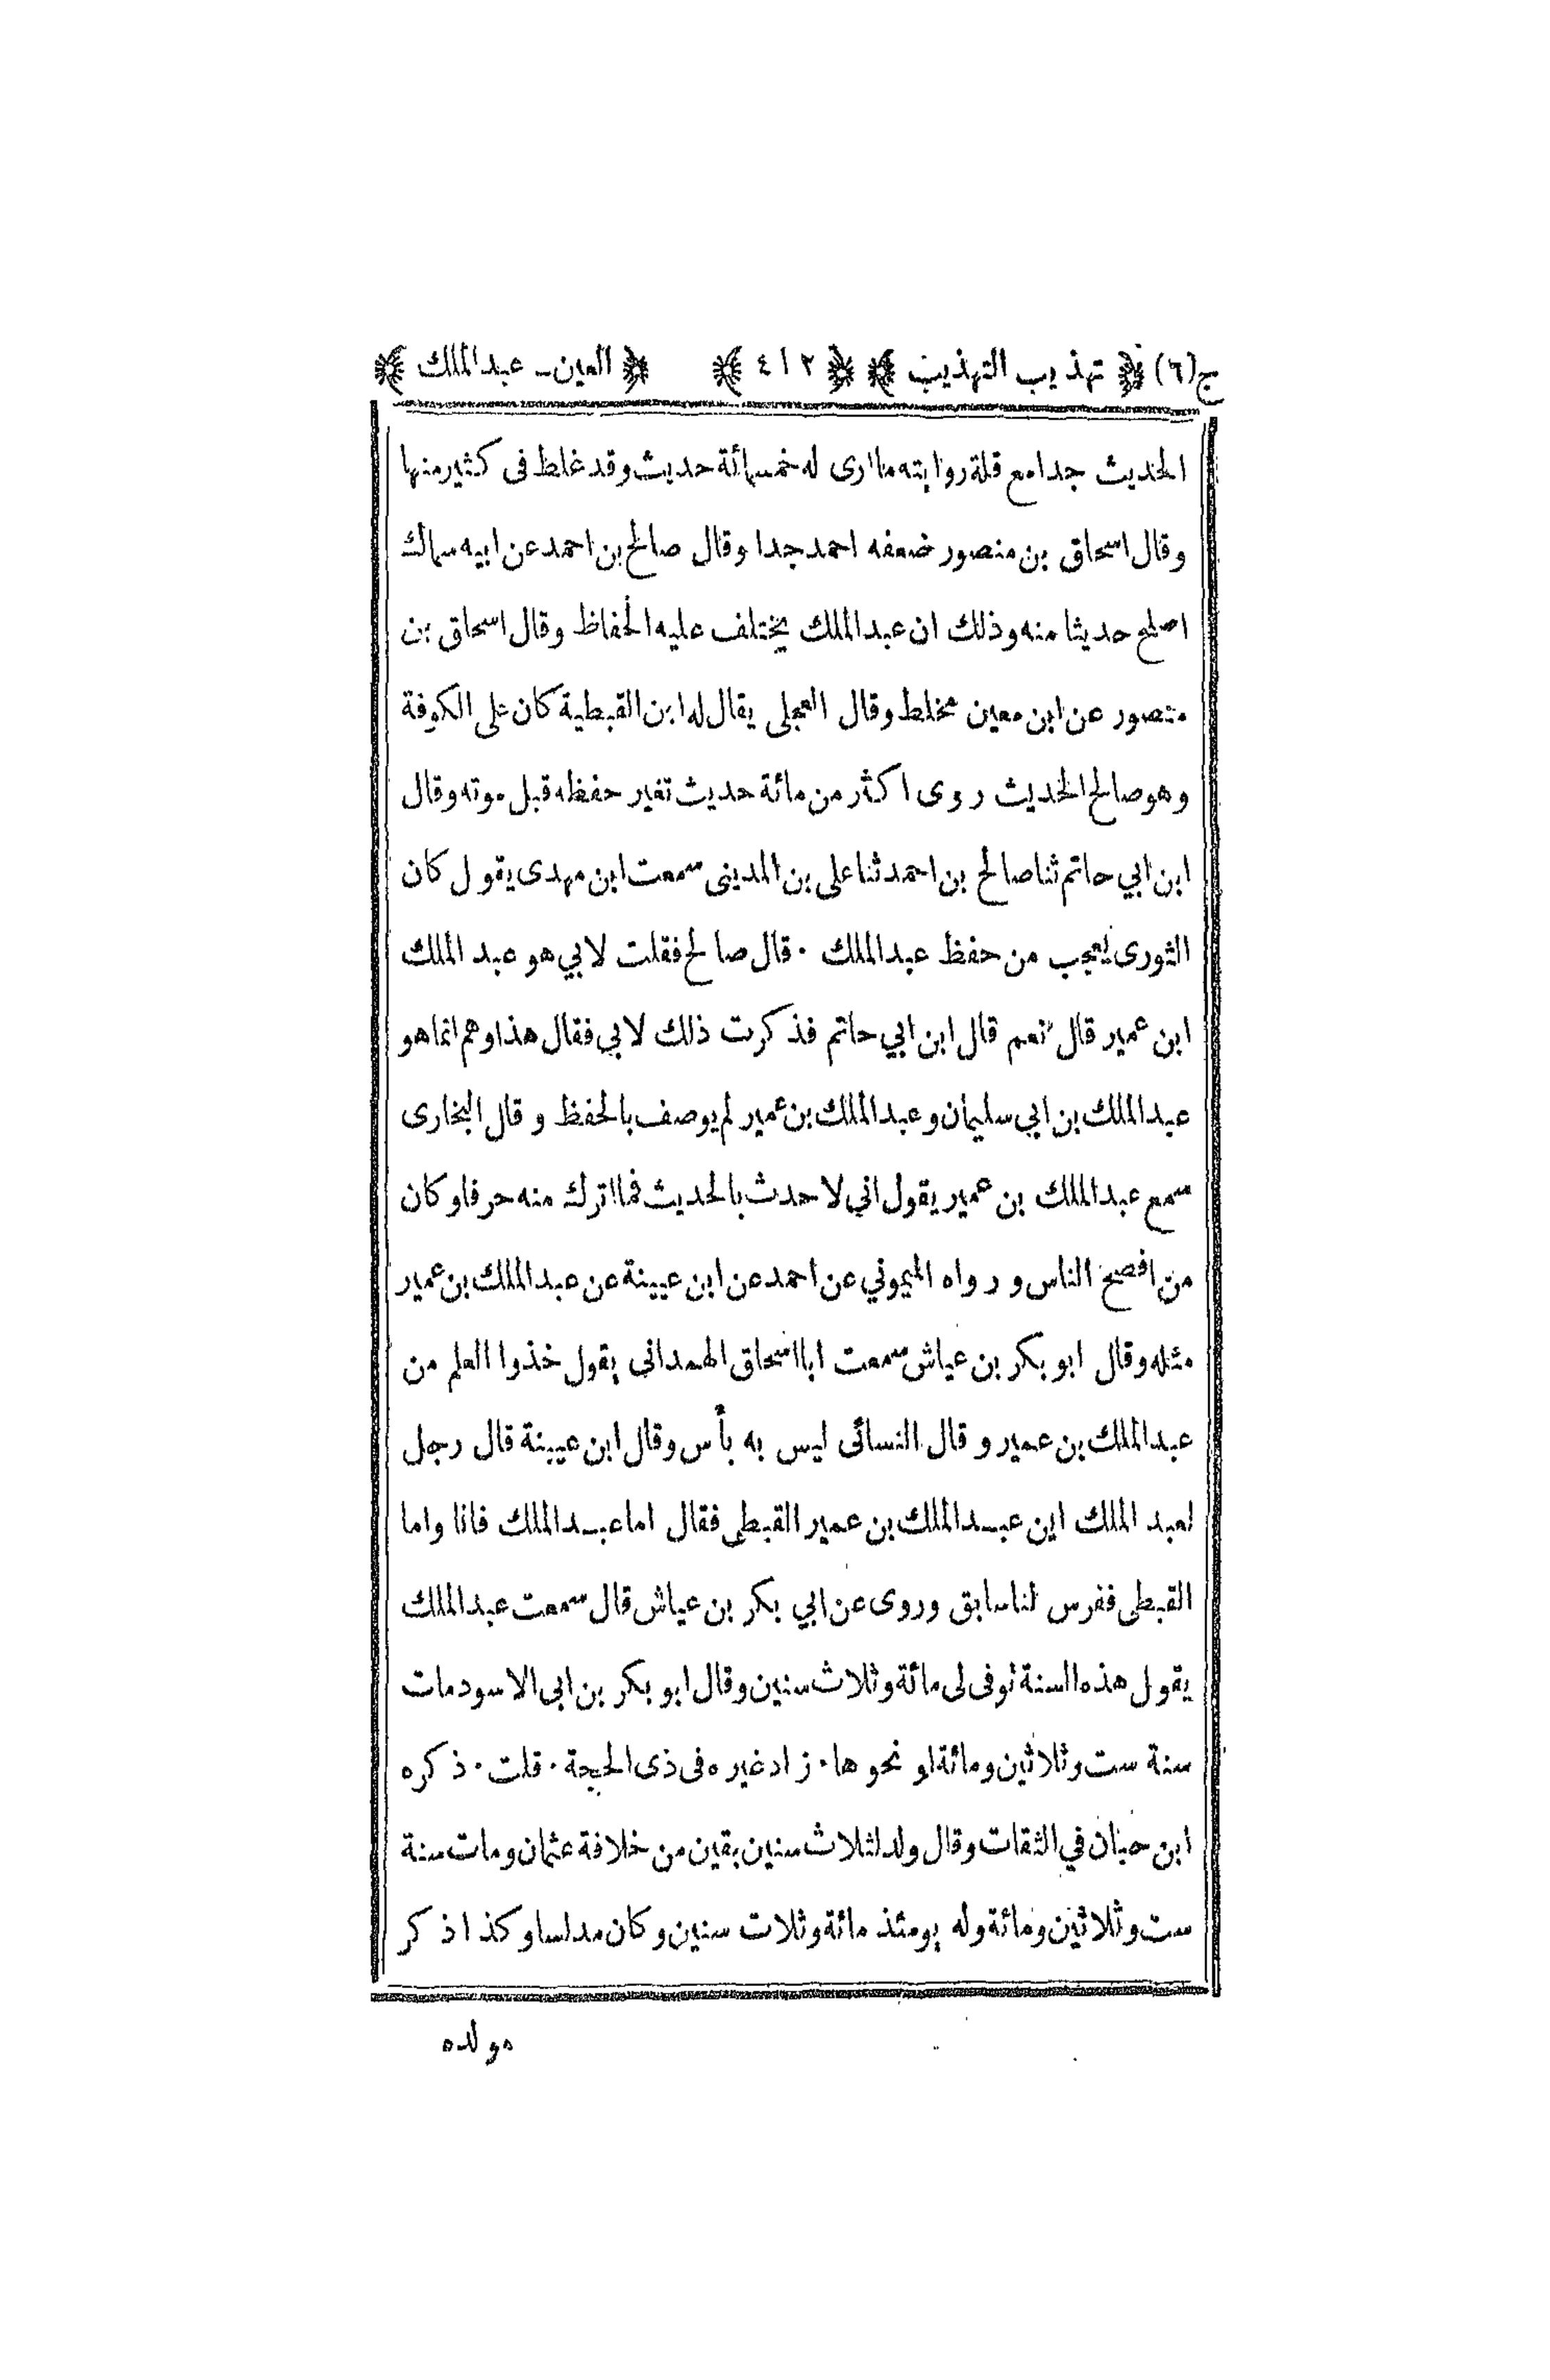 ج(٦) ﴿ تهذيب التهذيب ﴾ ﴿ ٤١٢ ﴾ ﴿ العين ـ عبدالملك ﴾
الحديث جدا مع قلة روايته ما ارى له خمسمائة حديث وقد غلط فى كثير منها
وقال اسحاق بن منصور ضعفه احمد جدا وقال صالح بن احمد عن ابيه سماك
اصلح حديثا منه وذلك ان عبد الملك يختلف عليه الحفاظ وقال اسحاق بن
منصور عن ابن معين مخلط وقال العجلى يقال له ابن القبطية كان على الكوفة
وهو صالح الحديث روى اكثر من مائة حديث تغير حفظه قبل موته وقال
ابن ابي حاتم ثنا صالح بن احمد ثنا على بن المدينى سمعت ابن مهدى يقول كان
الثورى يعجب من حفظ عبد الملك ٠ قال صالح فقلت لابي هو عبد الملك
ابن عمير قال نعم قال ابن ابي حاتم فذكرت ذلك لابي فقال هذا وهم انما هو
عبد الملك بن ابي سليمان وعبد الملك بن عمير لم يوصف بالحفظ وقال البخارى
سمع عبد الملك بن عمير يقول اني لاحدث بالحديث فما اترك منه حرفا وكان
من افصح الناس ورواه الميموني عن احمد عن ابن عيينة عن عبد الملك بن عمير
مثله وقال ابو بكر بن عياش سمعت ابا اسحاق الهمدانى يقول خذوا العلم من
عبد الملك بن عمير وقال النسائى ليس به بأس وقال ابن عيينة قال رجل
لعبد الملك اين عبد الملك بن عمير القبطى فقال اما عبد الملك فانا واما
القبطى ففرس لنا سابق وروى عن ابي بكر بن عياش قال سمعت عبد الملك
يقول هذه السنة توفى لى مائة وثلاث سنين وقال ابو بكر بن ابى الاسود مات
سنة ست وثلاثين ومائة او نحوها ٠ زاد غيره فى ذى الحجة ٠ قلت ٠ ذكره
ابن حبان في الثقات وقال ولد لثلاث سنين بقين من خلافة عثمان ومات سنة
ست وثلاثين ومائة وله يومئذ مائة وثلاث سنين وكان مدلسا وكذا ذكر
مولده